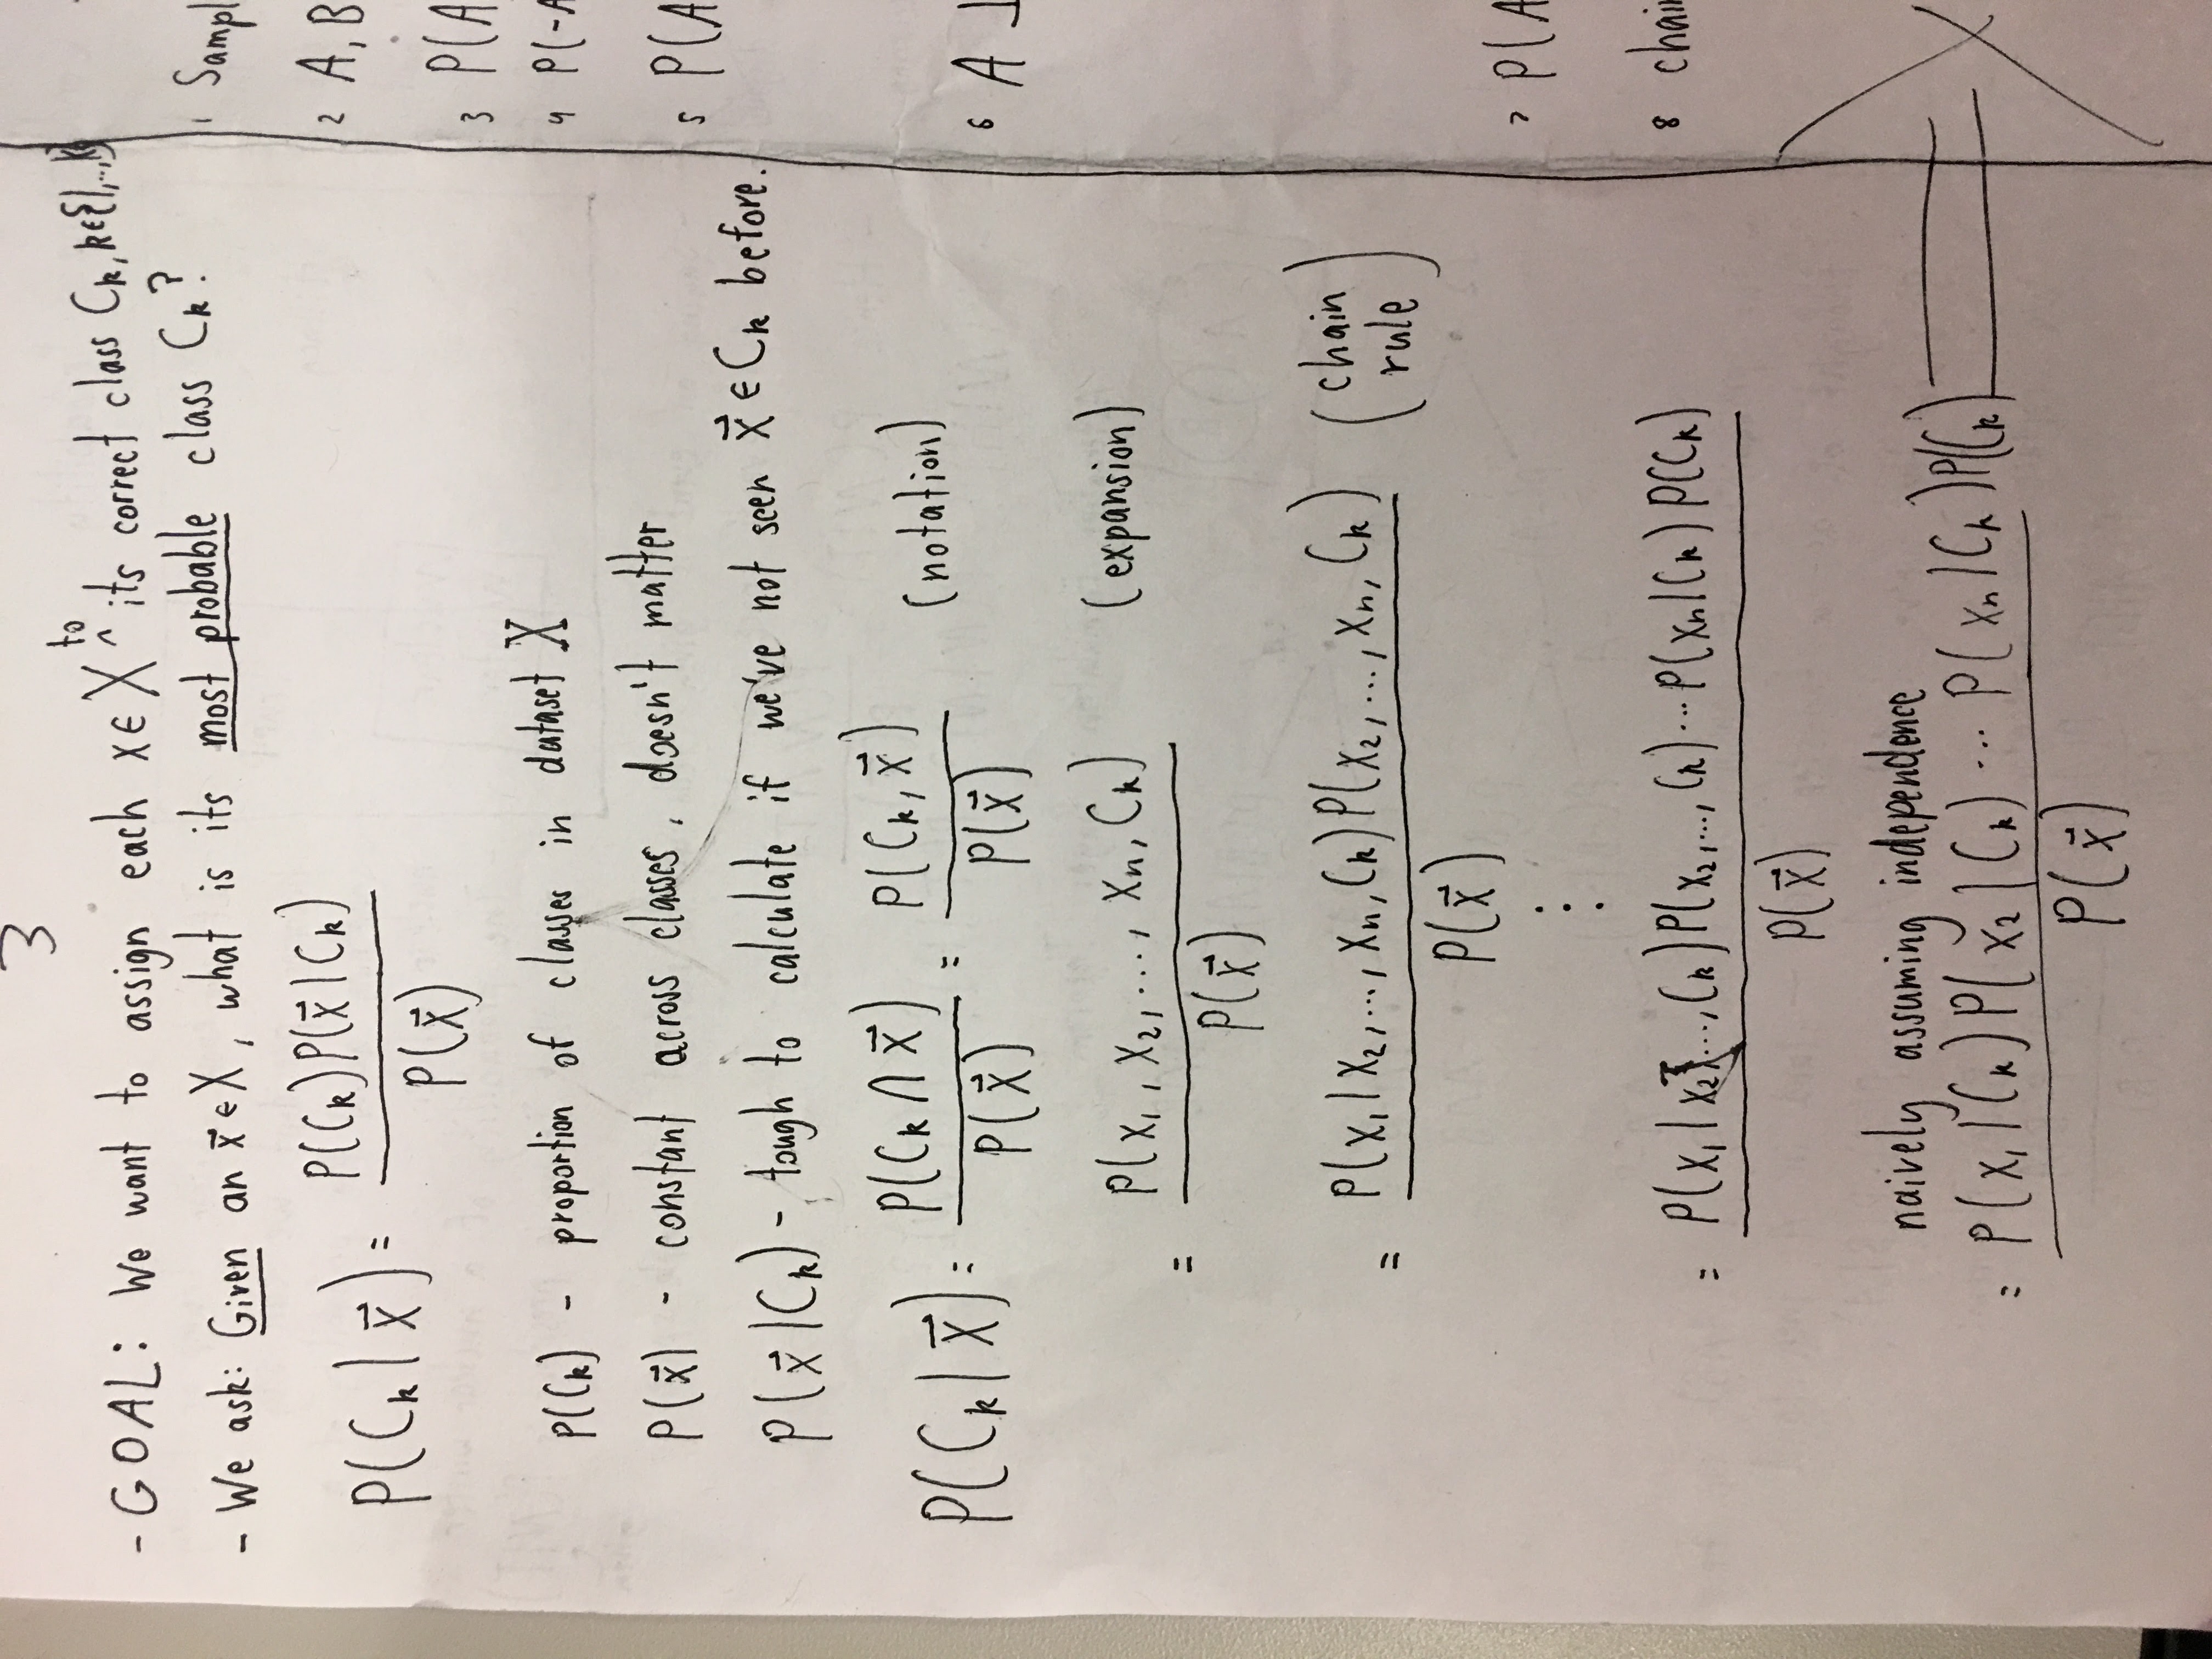 3
- GOAL: We want to assign each x ∈ X ^to its correct class Ck, k∈{1,..,K}
- We ask: Given an x⃗ ∈ X, what is its most probable class Ck?
P(Ck | x⃗) = P(Ck)P(x⃗ | Ck) / P(x⃗)
P(Ck) - proportion of classes in dataset X
P(x⃗) - constant across classes, doesn't matter
P(x⃗ | Ck) - tough to calculate if we've not seen x⃗ ∈ Ck before.
P(Ck | x⃗) = P(Ck ∩ x⃗) / P(x⃗) = P(Ck, x⃗) / P(x⃗) (notation)
= P(x1, x2, ..., xn, Ck) / P(x⃗) (expansion)
= P(x1 | x2, ..., xn, Ck) P(x2, ..., xn, Ck) / P(x⃗) (chain rule)
⋮
= P(x1 | x2, ..., Ck) P(x2, ..., Ck) ... P(xn | Ck) P(Ck) / P(x⃗)
naively assuming independence
= P(x1 | Ck) P(x2 | Ck) ... P(xn | Ck) P(Ck) / P(x⃗)
1 Sampl
2 A, B
3 P(A
4 P(-A
5 P(A
6 A
7 P(A
8 chain